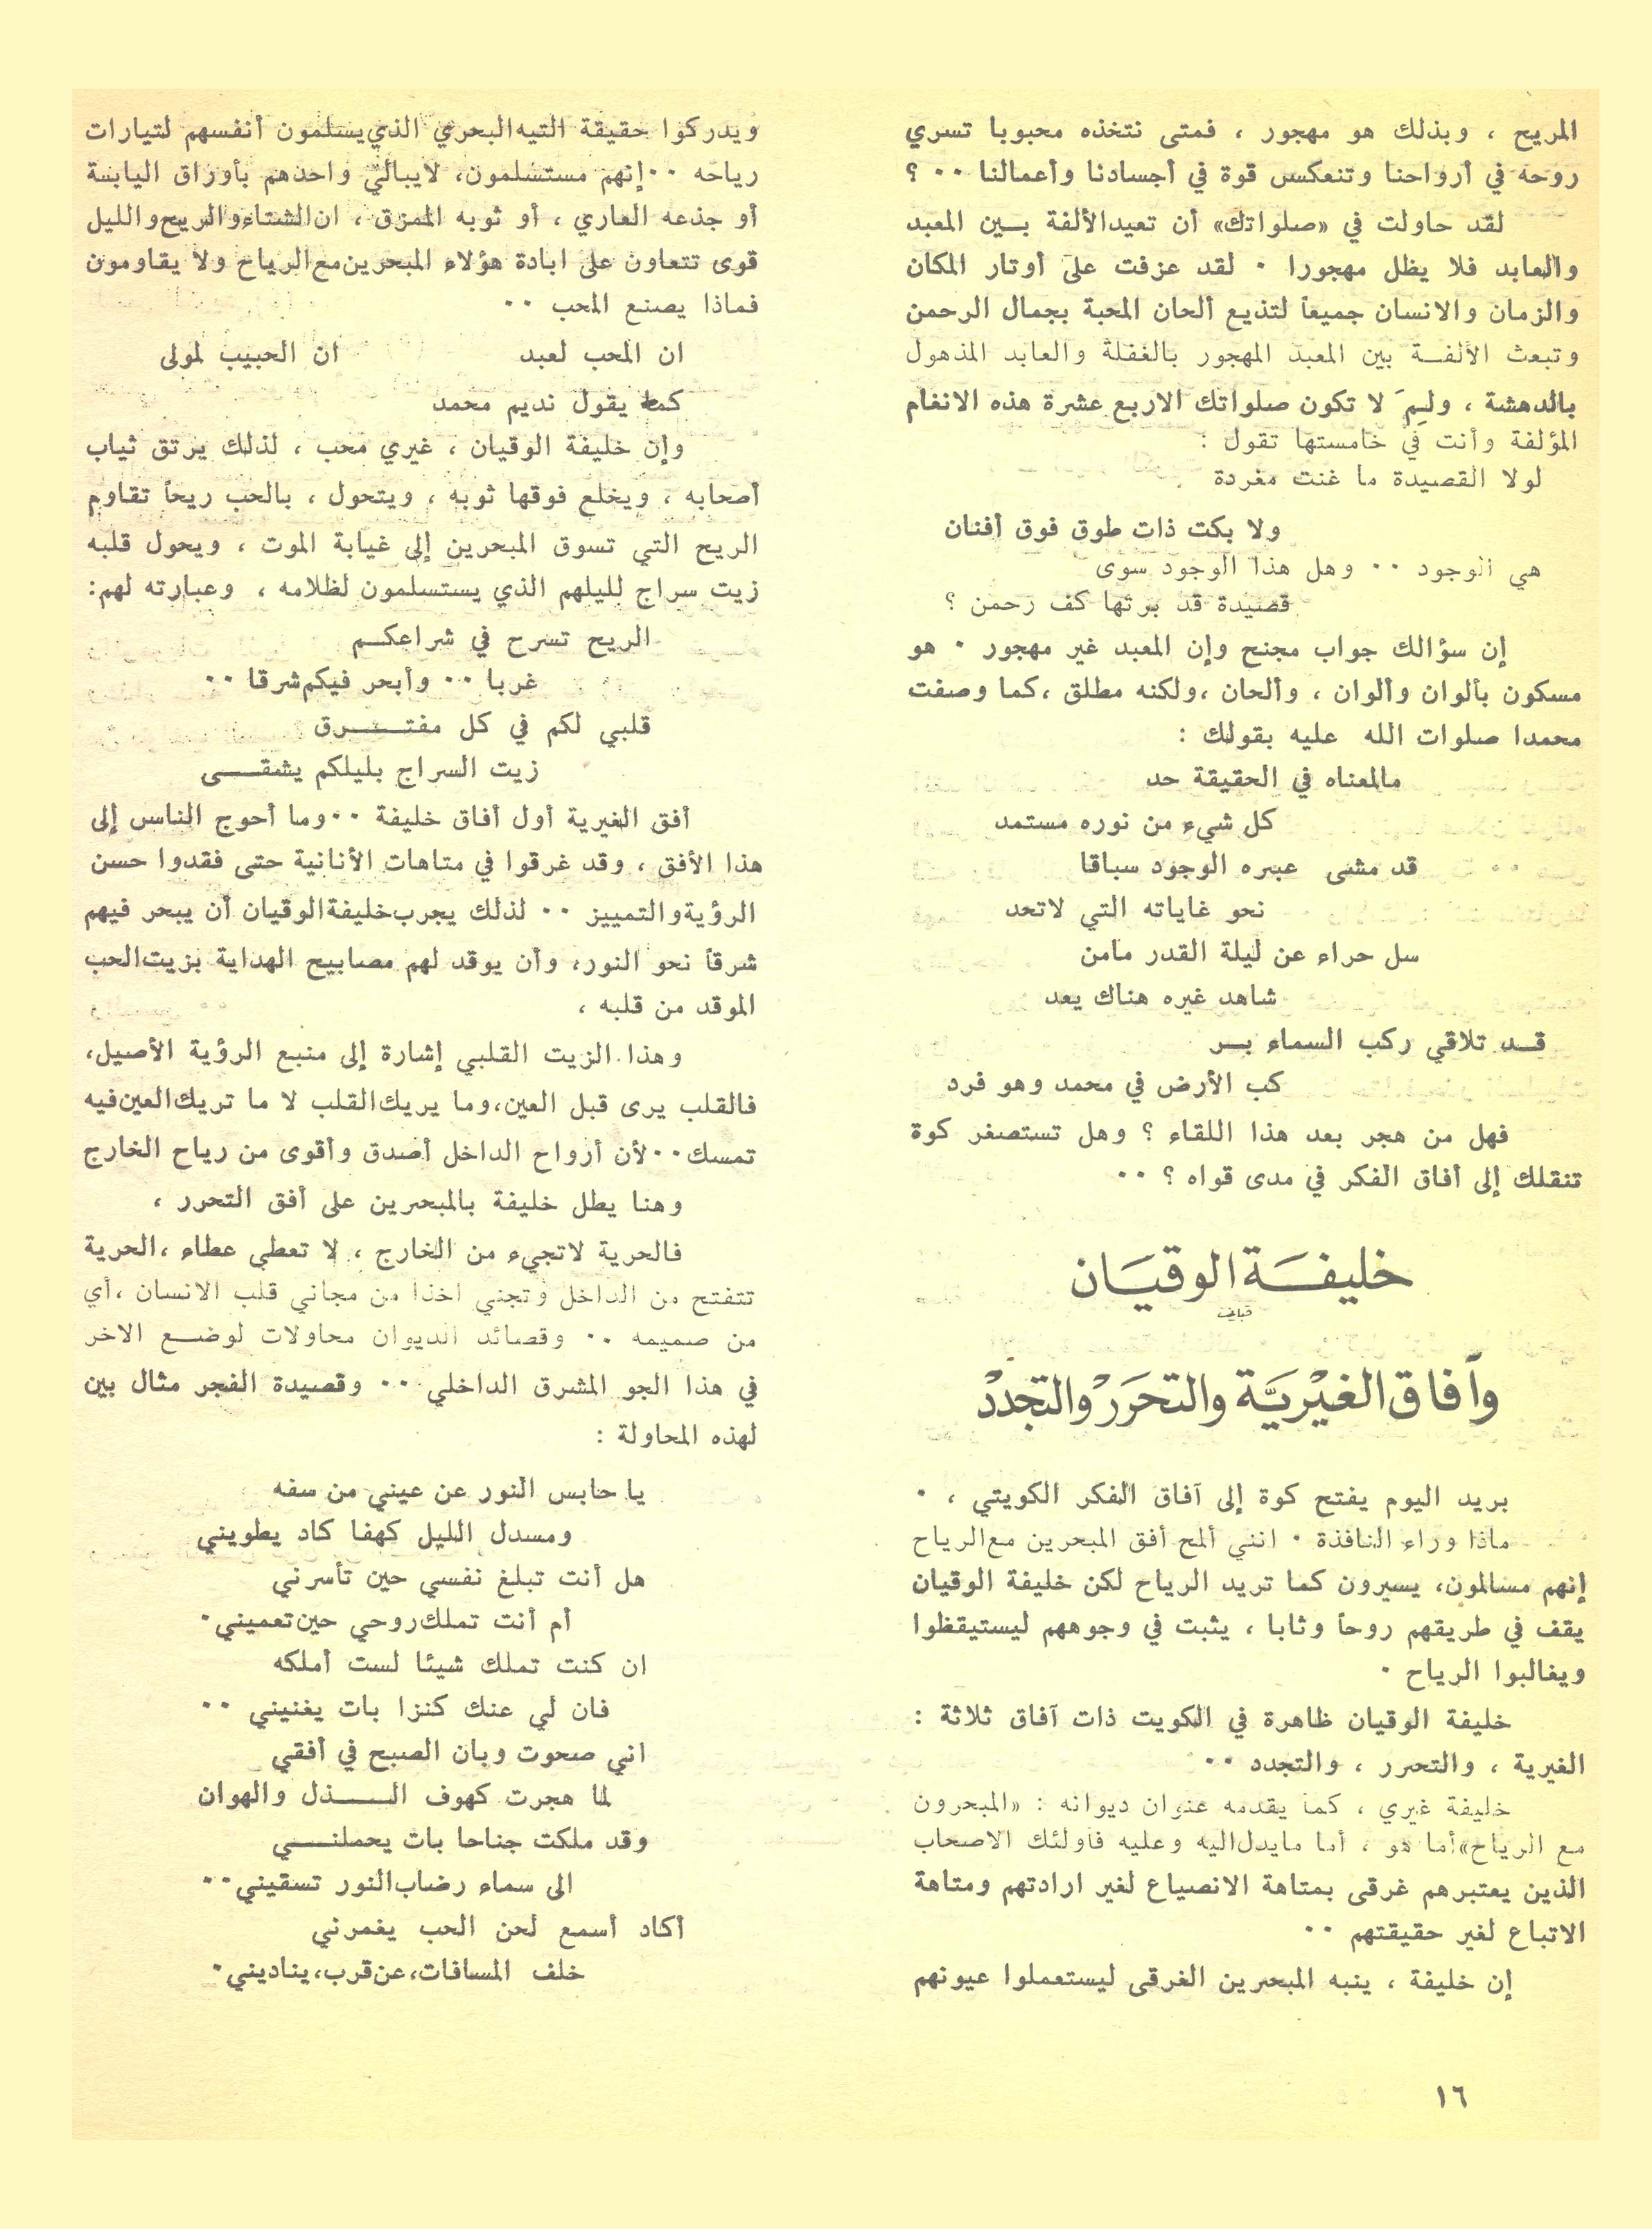 المريح ، وبذلك هو مهجور ، فمتى نتخذه محبوبا تسري
روحه في أرواحنا وتنعكس قوة في أجسادنا وأعمالنا ٠٠ ؟
لقد حاولت في «صلواتك» أن تعيدالألفة بــين المعبد
والعابد فلا يظل مهجورا ٠ لقد عزفت على أوتار المكان
والزمان والانسان جميعاً لتذيع ألحان المحبة بجمال الرحمن
وتبعث الألفــة بين المعبد المهجور بالغفلة والعابد المذهول
بالدهشة ، ولِمَ لا تكون صلواتك الاربع عشرة هذه الانغام
المؤلفة وأنت في خامستها تقول :
لولا القصيدة ما غنت مغردة
ولا بكت ذات طوق فوق أفنان
هي الوجود ٠٠ وهل هذا الوجود سوى
قصيدة قد برتها كف رحمن ؟
إن سؤالك جواب مجنح وإن المعبد غير مهجور ٠ هو
مسكون بألوان وألوان ، وألحان ،ولكنه مطلق ،كما وصفت
محمدا صلوات الله عليه بقولك :
مالمعناه في الحقيقة حد
كل شيء من نوره مستمد
قد مشى عبره الوجود سباقا
نحو غاياته التي لاتحد
سل حراء عن ليلة القدر مامن
شاهد غيره هناك يعد
قــد تلاقي ركب السماء بــر
كب الأرض في محمد وهو فرد
فهل من هجر بعد هذا اللقاء ؟ وهل تستصغر كوة
تنقلك إلى آفاق الفكر في مدى قواه ؟ ٠٠
خليفــة الوقيـان
وآفاق الغيْريَّة والتحرَرْ والتجَددْ
بريد اليوم يفتح كوة إلى آفاق الفكر الكويتي ، ٠
ماذا وراء النافذة ٠ انني ألمح أفق المبحرين مع الرياح
إنهم مسالمون، يسيرون كما تريد الرياح لكن خليفة الوقيان
يقف في طريقهم روحاً وثابا ، يثبت في وجوههم ليستيقظوا
ويغالبوا الرياح ٠
خليفة الوقيان ظاهرة في الكويت ذات آفاق ثلاثة :
الغيرية ، والتحرر ، والتجدد ٠٠
خليفة غيري ، كما يقدمه عنوان ديوانه : «المبحرون
مع الرياح»أما هو ، أما مايدل اليه وعليه فأولئك الاصحاب
الذين يعتبرهم غرقى بمتاهة الانصياع لغير ارادتهم ومتاهة
الاتباع لغير حقيقتهم ٠٠
إن خليفة ، ينبه المبحرين الغرقى ليستعملوا عيونهم
ويدركوا حقيقة التيه البحري الذي يسلمون أنفسهم لتيارات
رياحه ٠٠إنهم مستسلمون، لايبالي واحدهم بأوراق اليابسة
أو جذعه العاري ، أو ثوبه الممزق ، ان الشتاء والريح والليل
قوى تتعاون على ابادة هؤلاء المبحرين مع الرياح ولا يقاومون
فماذا يصنع المحب ٠٠
ان المحب لعبد ان الحبيب لمولى
كما يقول نديم محمد
وإن خليفة الوقيان ، غيري محب ، لذلك يرتق ثياب
أصحابه ، ويخلع فوقها ثوبه ، ويتحول ، بالحب ريحاً تقاوم
الريح التي تسوق المبحرين إلى غيابة الموت ، ويحول قلبه
زيت سراج لليلهم الذي يستسلمون لظلامه ، وعبارته لهم:
الريح تسرح في شراعكــم
غربا ٠٠ وأبحر فيكم شرقا ٠٠
قلبي لكم في كل مفتــــرق
زيت السراج بليلكم يشقــى
أفق الغيرية أول آفاق خليفة ٠٠وما أحوج الناس إلى
هذا الأفق ، وقد غرقوا في متاهات الأنانية حتى فقدوا حسن
الرؤية والتمييز ٠٠ لذلك يجرب خليفة الوقيان أن يبحر فيهم
شرقاً نحو النور، وأن يوقد لهم مصابيح الهداية بزيت الحب
الموقد من قلبه ،
وهذا الزيت القلبي إشارة إلى منبع الرؤية الأصيل،
فالقلب يرى قبل العين،وما يريك القلب لا ما تريك العين فيه
تمسك٠٠لأن أرواح الداخل أصدق وأقوى من رياح الخارج
وهنا يطل خليفة بالمبحرين على أفق التحرر ،
فالحرية لاتجيء من الخارج ، لا تعطي عطاء ،الحرية
تتفتح من الداخل وتجني اخذا من مجاني قلب الانسان ،أي
من صميمه ٠٠ وقصائد الديوان محاولات لوضــع الاخر
في هذا الجو المشرق الداخلي ٠٠ وقصيدة الفجر مثال بين
لهذه المحاولة :
يا حابس النور عن عيني من سفه
ومسدل الليل كهفا كاد يطويني
هل أنت تبلغ نفسي حين تأسرني
أم أنت تملك روحي حين تعميني٠
ان كنت تملك شيئا لست أملكه
فان لي عنك كنزا بات يغنيني ٠٠
اني صحوت وبان الصبح في أفقي
لما هجرت كهوف الــــذل والهوان
وقد ملكت جناحا بات يحملنــــي
الى سماء رضاب النور تسقيني٠٠
أكاد أسمع لحن الحب يغمرني
خلف المسافات،عن قرب،يناديني٠
١٦